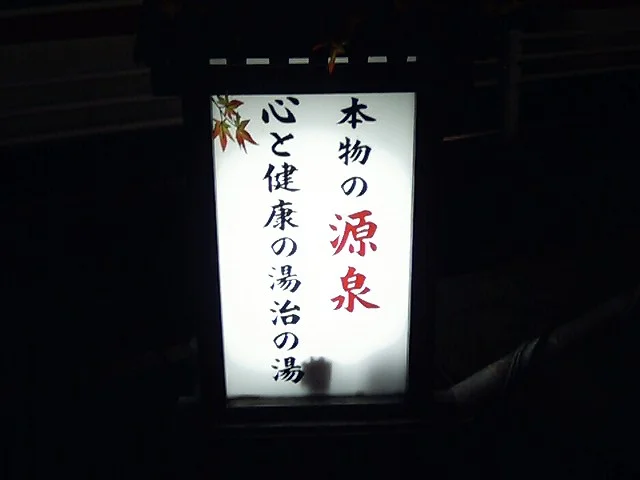 本物の源泉
心と健康の湯治の湯